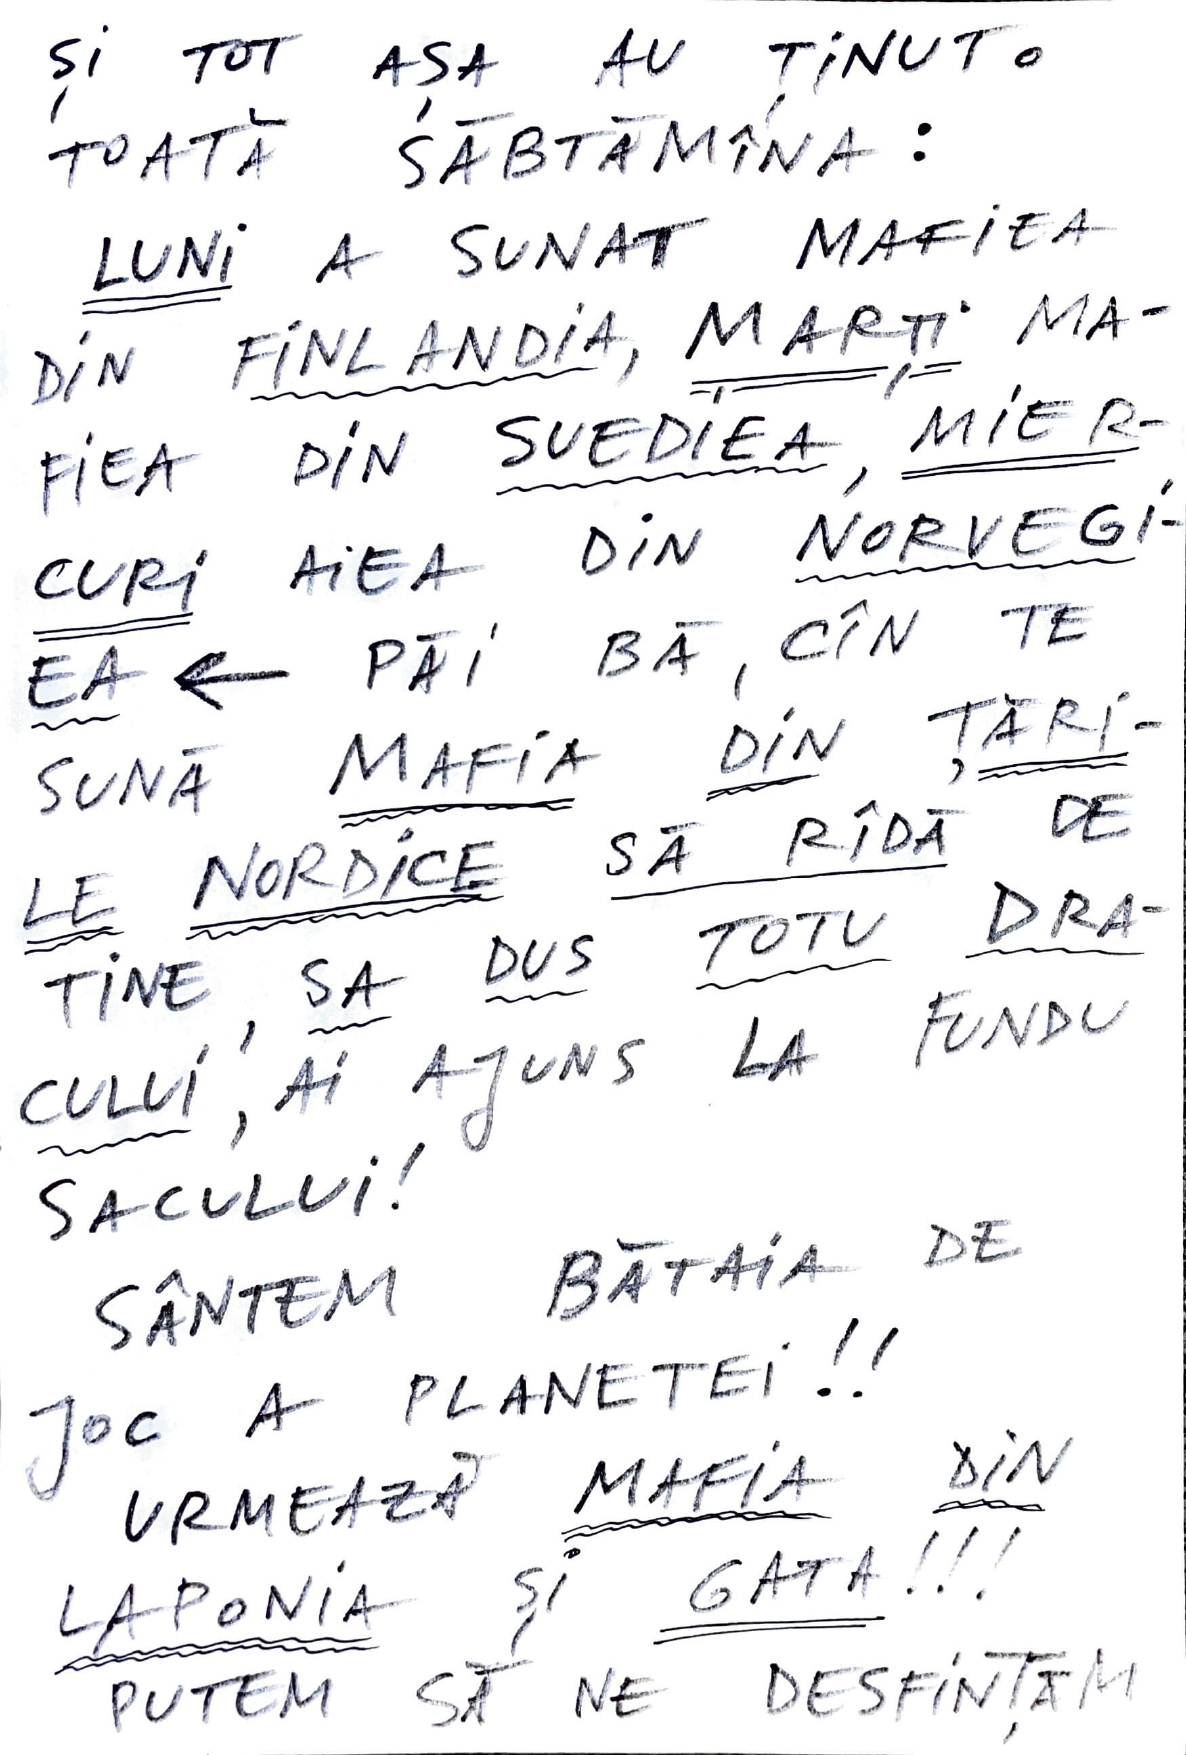 ȘI TOT AȘA AU ȚINUT.
TOATĂ SĂBTĂMÎNA:
LUNI A SUNAT MAFIEA
DIN FINLANDIA, MARȚI MA-
FIEA DIN SUEDIEA, MIER-
CURI AIEA DIN NORVEGI-
EA ← PĂI BĂ, CÎN TE
SUNĂ MAFIA DIN ȚĂRI-
LE NORDICE SĂ RÎDĂ DE
TINE, SA DUS TOTU DRA-
CULUI, AI AJUNS LA FUNDU
SACULUI!
SÂNTEM BĂTAIA DE
JOC A PLANETEI!!
URMEAZĂ MAFIA DIN
LAPONIA ȘI GATA!!!
PUTEM SĂ NE DESFINȚĂM